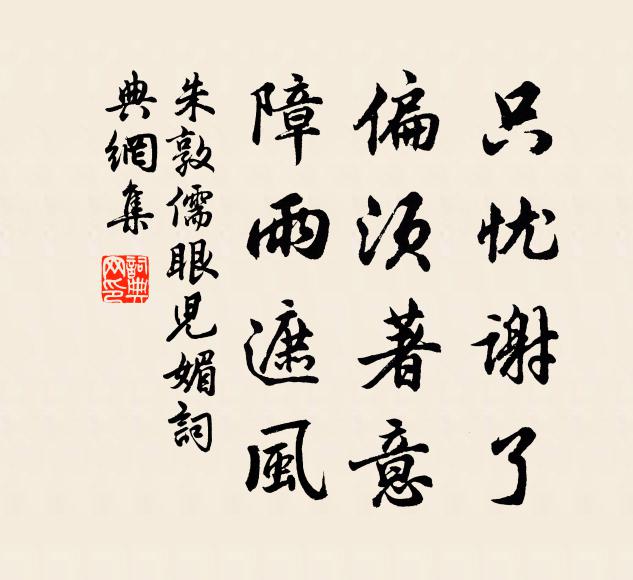 只忧谢了
偏须著意
障雨遮風
朱敦儒眼児媚詞
典網集
詞典网印